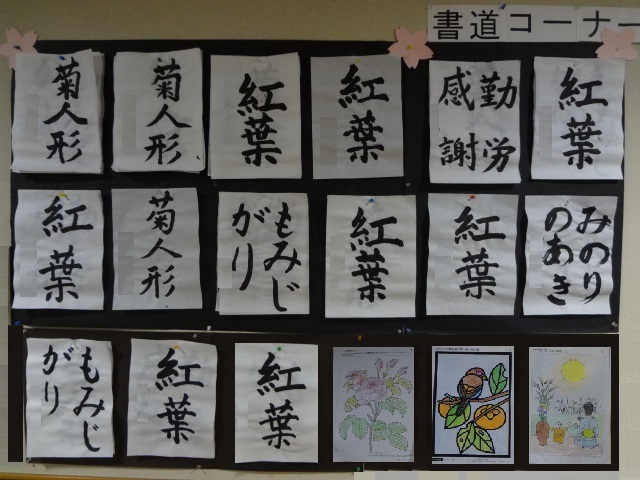 書道コーナー
菊人形
菊人形
紅葉
紅葉
勤労
感謝
紅葉
紅葉
菊人形
もみじ
がり
紅葉
紅葉
みのり
のあき
もみじ
がり
紅葉
紅葉